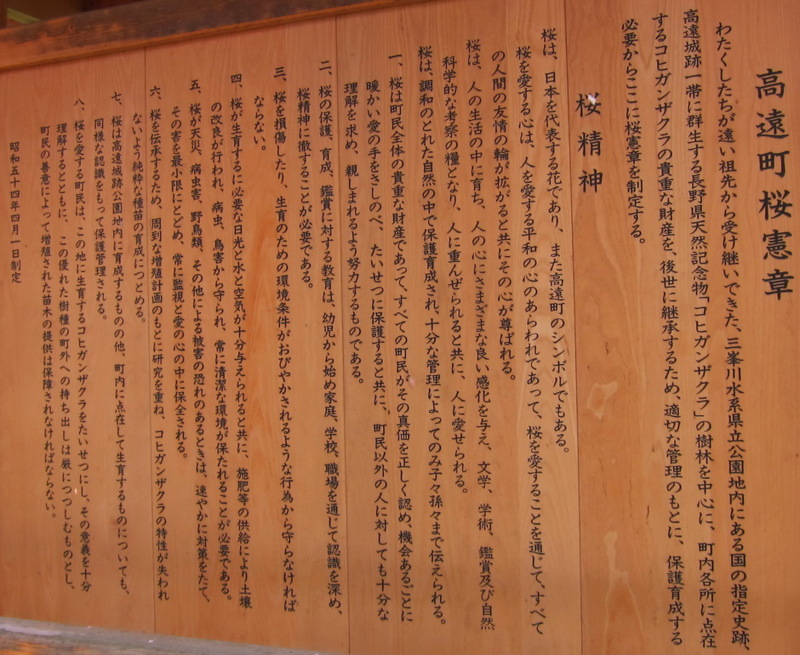 高遠町桜憲章
わたくしたちが遠い祖先から受け継いできた、三峯川水系県立公園地内にある国の指定史跡、
高遠城跡一帯に群生する長野県天然記念物「コヒガンザクラ」の樹林を中心に、町内各所に点在
するコヒガンザクラの貴重な財産を、後世に継承するため、適切な管理のもとに、保護育成する
必要からここに桜憲章を制定する。
桜精神
桜は、日本を代表する花であり、また高遠町のシンボルでもある。
桜を愛する心は、人を愛する平和の心のあらわれであって、桜を愛することを通じて、すべて
の人間の友情の輪が拡がると共にその心が尊ばれる。
桜は、人の生活の中に育ち、人の心にさまざまな良い感化を与え、文学、学術、鑑賞及び自然
科学的な考察の糧となり、人に重んぜられると共に、人に愛せられる。
桜は、調和のとれた自然の中で保護育成され、十分な管理によってのみ子々孫々まで伝えられる。
一、桜は町民全体の貴重な財産であって、すべての町民がその真価を正しく認め、機会あるごとに
暖かい愛の手をさしのべ、たいせつに保護すると共に、町民以外の人に対しても十分な
理解を求め、親しまれるよう努力するものである。
二、桜の保護、育成、鑑賞に対する教育は、幼児から始め家庭、学校、職場を通じて認識を深め、
桜精神に徹することが必要である。
三、桜を損傷したり、生育のための環境条件がおびやかされるような行為から守らなければ
ならない。
四、桜が生育するに必要な日光と水と空気が十分与えられると共に、施肥等の供給により土壌
の改良が行われ、病虫、鳥害から守られ、常に清潔な環境が保たれることが必要である。
五、桜が天災、病虫害、野鳥類、その他による被害の恐れのあるときは、速やかに対策をたて、
その害を最小限にとどめ、常に監視と愛の心の中に保全される。
六、桜を伝承するため、周到な増殖計画のもとに研究を重ね、コヒガンザクラの特性が失われ
ないよう純粋な種苗の育成につとめる。
七、桜は高遠城跡公園地内に育成するものの他、町内に点在して生育するものについても、
同様な認識をもって保護管理される。
八、桜を愛する町民は、この地に生育するコヒガンザクラをたいせつにし、その意義を十分
理解するとともに、この優れた樹種の町外への持ち出しは厳につつしむものとし、
町民の善意によって増殖された苗木の提供は保障されなければならない。
昭和五十四年四月一日制定